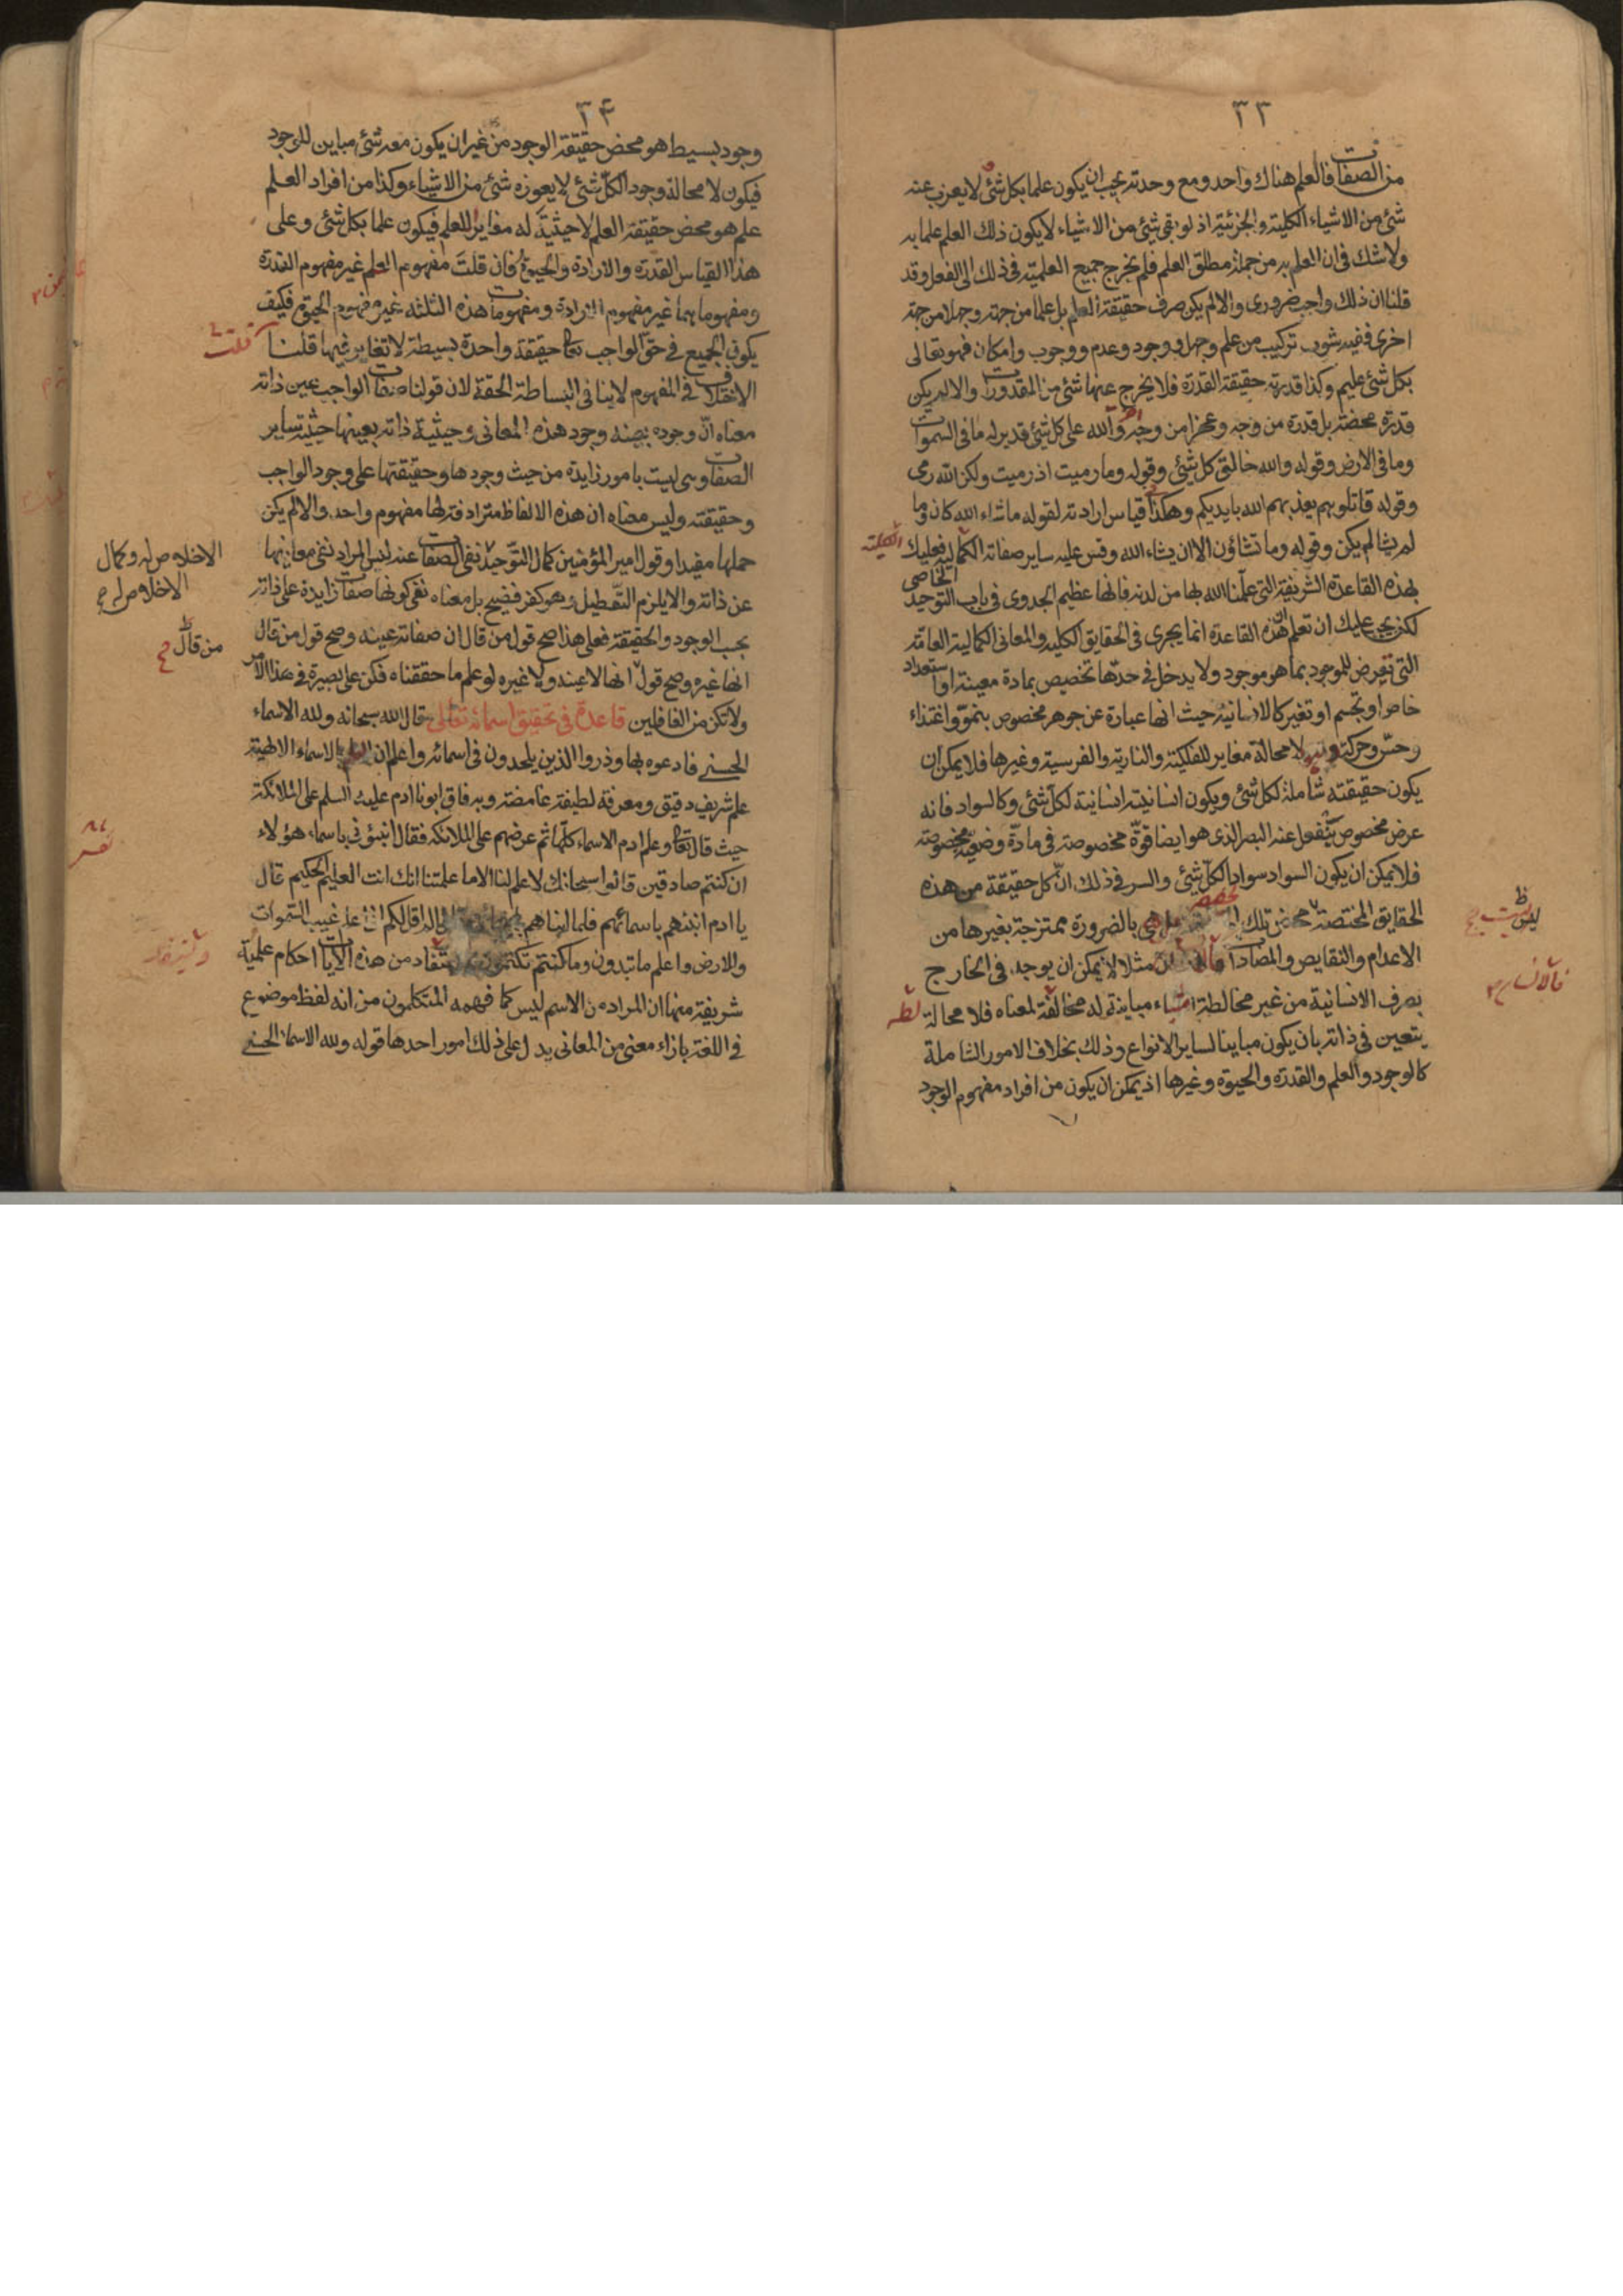 ٣٣
من الصفات فالعلم هناك واحد ومع وحدته يجب ان يكون علما بكل شئ لا يعزب عنه
شئ من الاشياء الكلية والجزئية اذ لو بقى شئ من الاشياء لا يكون ذلك العلم علما به
ولا شك فى ان العلم به من جملة مطلق العلم فلم يخرج جميع العلمية فى ذلك الى الفعل وقد
قلنا ان ذلك واجب ضرورى والا لم يكن صرف حقيقة العلم بل علما من جهة وجهلا من جهة
اخرى ففيه شوب تركيب من علم وجهل ووجود وعدم ووجوب وامكان فهو تعالى
بكل شئ عليم وكذا قدرته حقيقة القدرة فلا يخرج عنها شئ من المقدورات والا لم يكن
قدرة محضة بل قدرة من وجه وعجزا من وجه آخر والله على كل شئ قدير له ما فى السموات
وما فى الارض وقوله والله خالق كل شئ وقوله وما رميت اذ رميت ولكن الله رمى
وقوله قاتلوهم يعذبهم الله بايديكم وهكذا قياس ارادته لقوله ما شاء الله كان وما
لم يشا لم يكن وقوله وما تشاؤن الا ان يشاء الله وقس عليه ساير صفاته الكمالية فعليك
بهذه القاعدة الشريفة التى علمنا الله بها من لدنه فانها عظيم الجدوى فى باب التوحيد الخاصى
لكن يجب عليك ان تعلم ان هذه القاعدة انما يجرى فى الحقايق الكلية والمعانى الكمالية العامة
التى تعرض للموجود بما هو موجود ولا يدخل فى حدها تخصيص بمادة معينة او استعداد
خاص او تجسم او تغير كالانسانية حيث انها عبارة عن جوهر مخصوص بنمو واغتذاء
وحس وحركة لا محالة مغاير للفلكية والنارية والفرسية وغيرها فلا يمكن ان
يكون حقيقته شاملة لكل شئ ويكون انسانيته انسانية لكل شئ وكالسواد فانه
عرض مخصوص ينفعل عنه البصر الذى هو ايضا قوة مخصوصة فى مادة وضعية مخصوصة
فلا يمكن ان يكون السواد سوادا لكل شئ والسر فى ذلك ان كل حقيقة من هذه
الحقايق المختصة تلك هى بالضرورة ممتزجة بغيرها من
الاعدام والنقايص والمضادات مثلا لا يمكن ان يوجد فى الخارج
بصرف الانسانية من غير مخالطة اشياء مباينة له مخالفة لمعناه فلا محالة
يتعين فى ذاته بان يكون مباينا لساير الانواع وذلك بخلاف الامور الشاملة
كالوجود والعلم والقدرة والحيوة وغيرها اذ يمكن ان يكون من افراد مفهوم الوجود
٣۴
وجود بسيط هو محض حقيقة الوجود من غير ان يكون معه شئ مباين للوجود
فيكون لا محالة وجود الكل شئ لا يعوزه شئ من الاشياء وكذا من افراد العلم
علم هو محض حقيقة العلم لا حيثية له مغاير للعلم فيكون علما بكل شئ وعلى
هذا القياس القدرة والارادة والحيوة فان قلت مفهوم العلم غير مفهوم القدرة
ومفهوماهما غير مفهوم الارادة ومفهومات هذه الثلثة غير مفهوم الحيوة فكيف
يكون الجميع فى حق الواجب تعا حقيقة واحدة بسيطة لا تغاير فيها قلنا
الاختلاف فى المفهوم لا ينافى البساطة الحقة لان قولنا صفات الواجب عين ذاته
معناه ان وجوده بعينه وجود هذه المعانى وحيثية ذاته بعينها حيثية ساير
الصفات وهى ليست بامور زايدة من حيث وجودها وحقيقتها على وجود الواجب
وحقيقته وليس معناه ان هذه الالفاظ مترادفة لها مفهوم واحد والا لم يكن
حملها مفيدا وقول امير المؤمنين كمال التوحيد نفى الصفات عنه ليس المراد نفى معانيها
الاخلاص له وكمال
الاخلاص له
عن ذاته والا يلزم التعطيل وهو كفر فضيح بل معناه نفى كونها صفات زايدة على ذاته
بحسب الوجود والحقيقة فعلى هذا صح قول من قال ان صفاته عينه وصح قول من قال
من قال
انها غيره وصح قول انها لا عينه ولا غيره لو علم ما حققناه فكن على بصيرة فى هذا الامر
ولا تكن من الغافلين قاعدة فى تحقيق اسمائه تعالى قال الله سبحانه ولله الاسماء
الحسنى فادعوه بها وذروا الذين يلحدون فى اسمائه واعلم ان بالاسماء الالهية
علم شريف دقيق ومعرفة لطيفة غامضة وبه فاق ابونا ادم عليه السلم على الملائكة
حيث قال تعا وعلم ادم الاسماء كلها ثم عرضهم على الملائكة فقال انبئونى باسماء هؤلاء
ان كنتم صادقين قالوا سبحانك لا علم لنا الا ما علمتنا انك انت العليم الحكيم قال
يا ادم انبئهم باسمائهم فلما انباهم الم اقل لكم انى اعلم غيب السموات
والارض واعلم ما تبدون وما كنتم تكتمون من هذه الآيات احكام علمية
شريفة منها ان المراد من الاسم ليس كما فهمه المتكلمون من انه لفظ موضوع
فى اللغة بازاء معنى من المعانى يدل على ذلك امور احدها قوله ولله الاسماء الحسنى